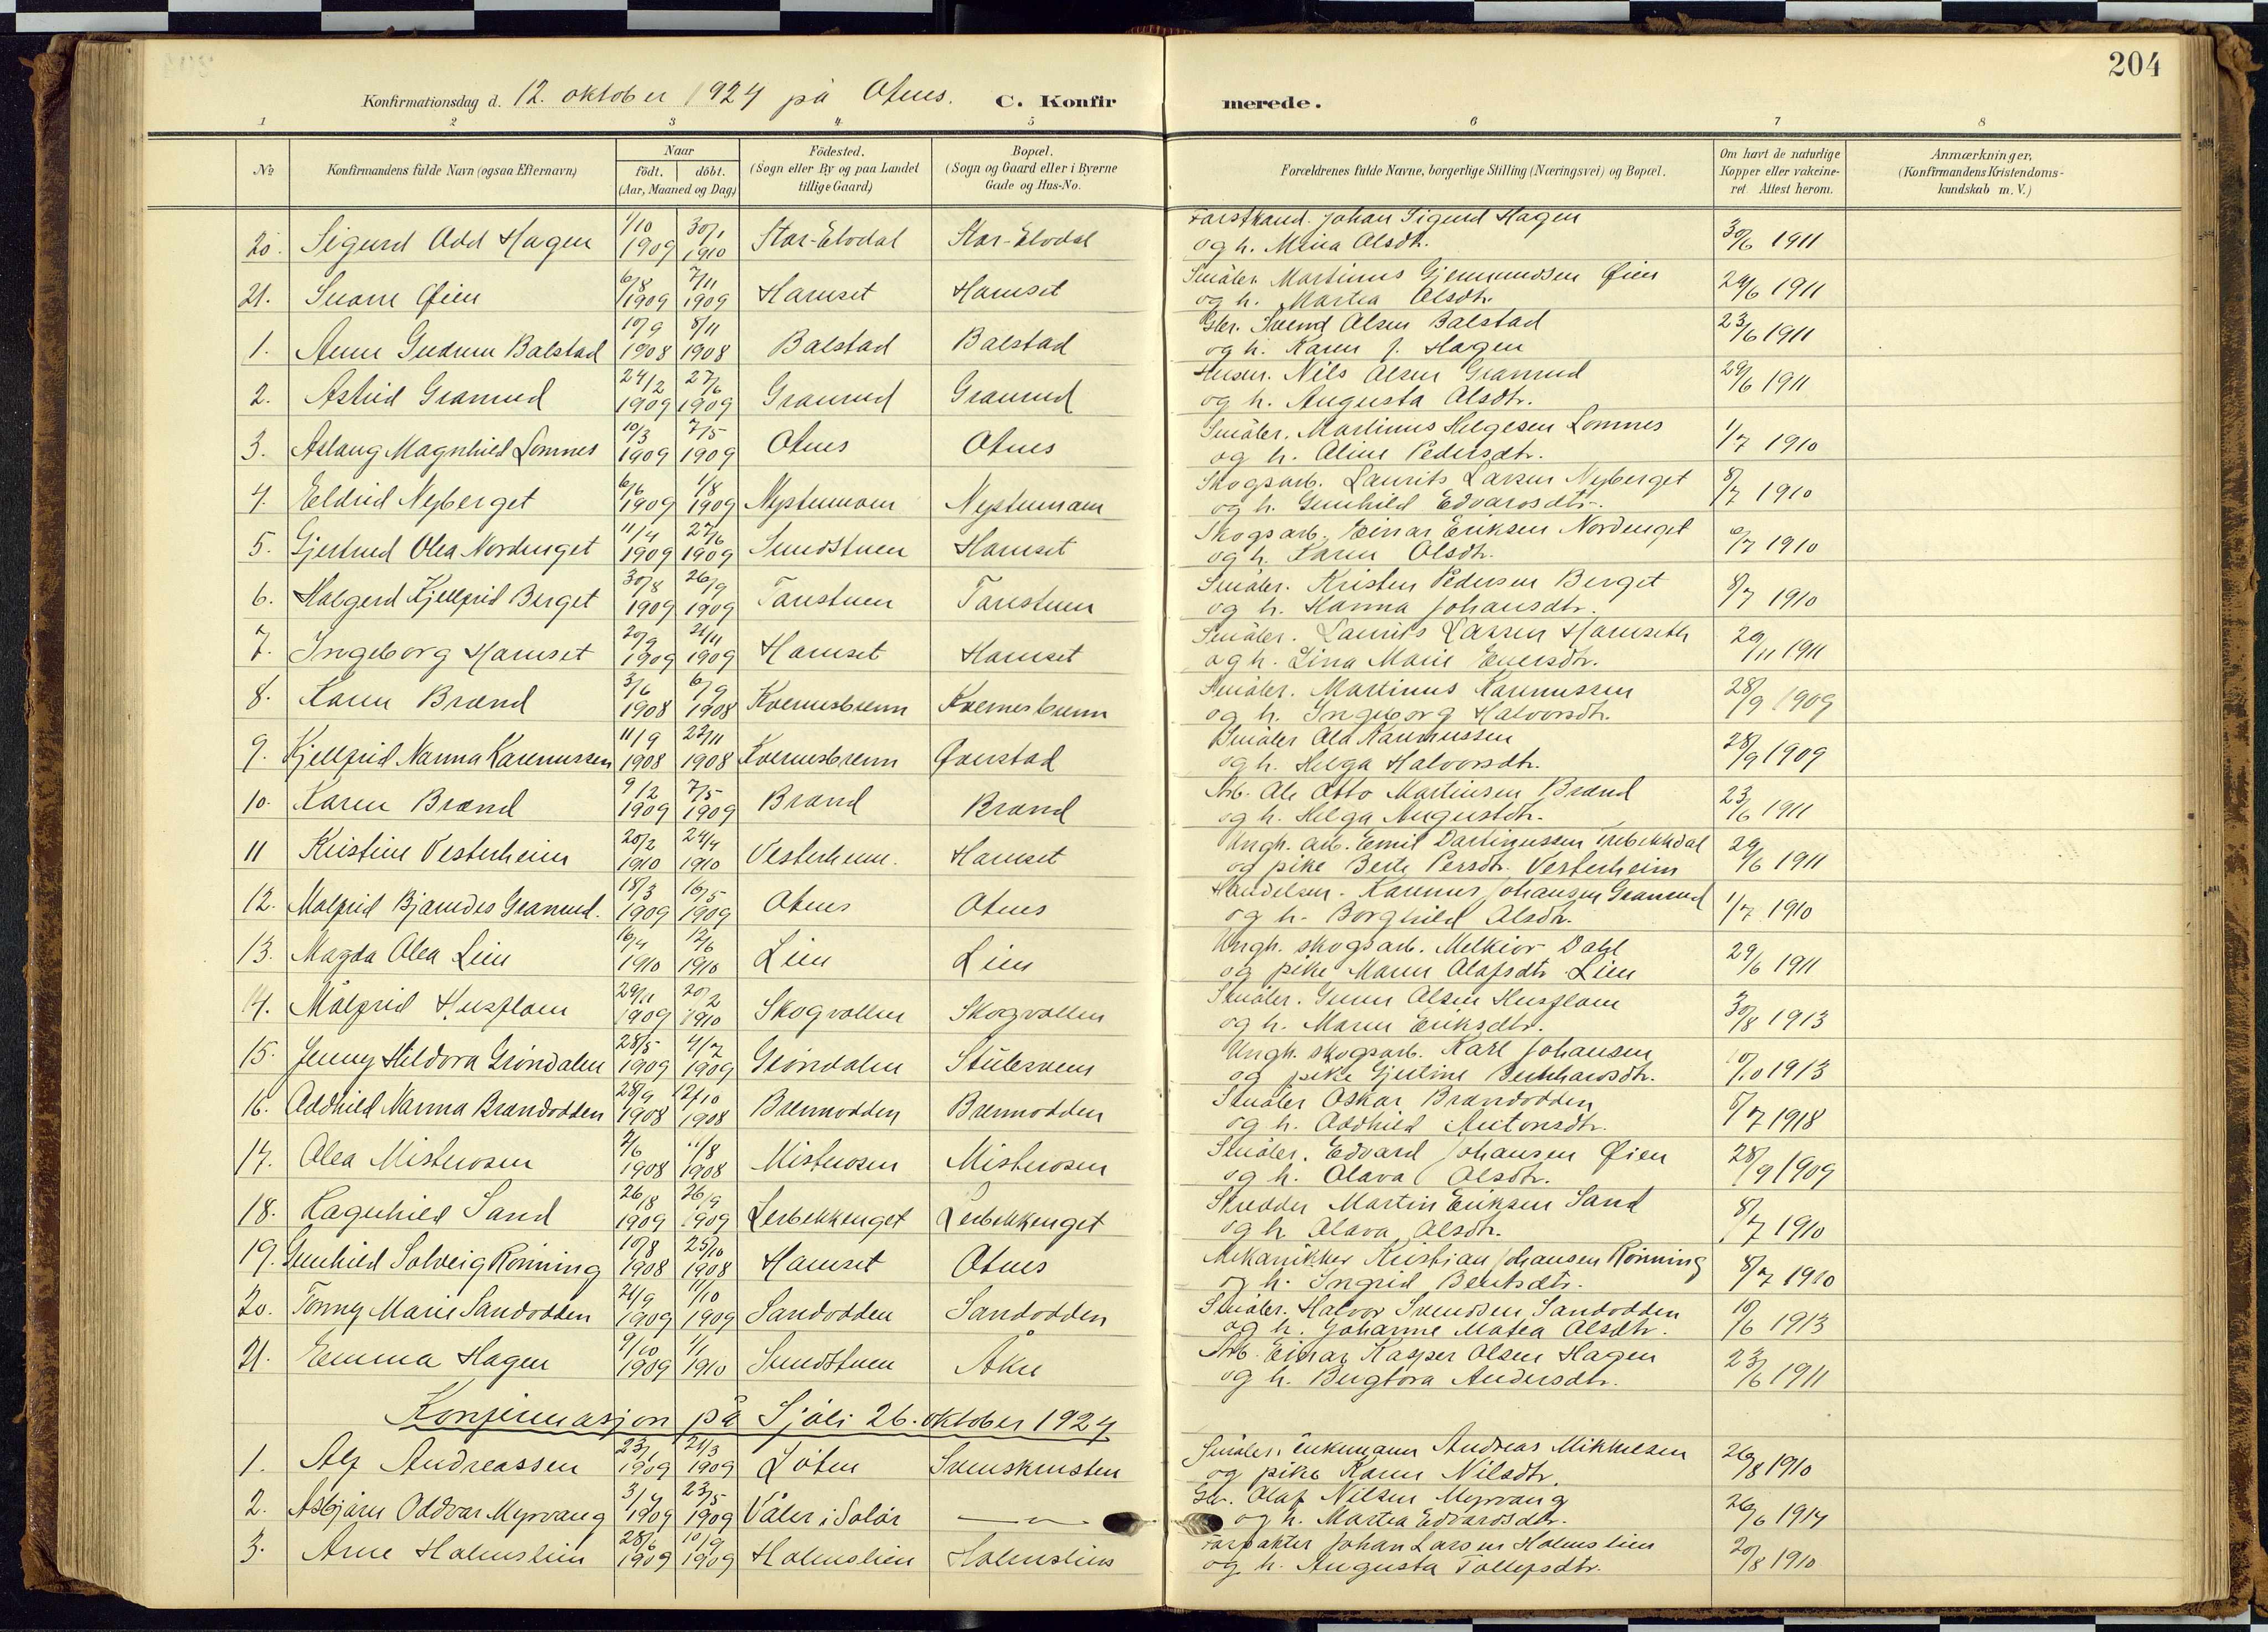 204
Konfirmationsdag d. 12. oktober 1924 på Otnes. C. Konfirmerede.
1 2 3 4 5 6 7 8
№ Konfirmandens fulde Navn (ogsaa Efternavn) Naar født. døbt. (Aar, Maaned og Dag) Fødested. (Sogn eller By og paa Landet tillige Gaard) Bopæl. (Sogn og Gaard eller i Byerne Gade og Hus-No. Forældrenes fulde Navne, borgerlige Stilling (Næringsvei) og Bopæl. Om havt de naturlige Kopper eller vakcineret. Attest herom. Anmærkninger, (Konfirmandens Kristendomskundskab m. V.)
20. Sigurd Odd Hagen 1/10 1909 30/1 1910 Stor-Elvdal Stor-Elvdal Forstkand. Johan Sigurd Hagen
og h. Mina Olsdtr. 30/6 1911
21. Snorre Øien 6/8 1909 7/11 1909 Harnset Harnset Småbr. Martinus Gjermundsen Øien
og h. Martea Olsdtr. 29/6 1911
1. Anne Gudrun Balstad 10/9 1908 8/11 1908 Balstad Balstad Gbr. Svend Olsen Balstad
og h. Karen f. Hagen 23/6 1911
2. Astrid Granrud 24/2 1909 27/6 1909 Granrud Granrud Husm. Nils Olsen Granrud
og h. Augusta Olsdtr. 29/6 1911
3. Aslaug Magnhild Lomnes 10/3 1909 7/5 1909 Otnes Otnes Småbr. Martinus Helgesen Lomnes
og h. Oline Pedersdtr. 1/7 1910
4. Eldrid Nyberget 6/6 1909 1/8 1909 Nystumoen Nystumoen Skogsarb. Laurits Larsen Nyberget
og h. Gunhild Edvardsdtr. 8/7 1910
5. Gjertrud Olea Nordenget 11/4 1909 27/6 1909 Sundstuen Harnset Skogsarb. Einar Eriksen Nordenget
og h. Karen Olsdtr. 6/7 1910
6. Halgerd Kjellfrid Berget 30/8 1909 26/9 1909 Torestuen Torestuen Småbr. Kristen Pedersen Berget
og h. Hanna Johansdtr. 8/7 1910
7. Ingeborg Harnset 20/9 1909 21/11 1909 Harnset Harnset Småbr. Laurits Larsen Harnseth
og h. Lina Marie Evensdtr. 29/11 1911
8. Karen Brænd 3/6 1908 6/9 1908 Kvernesbrenn Kvernesbrenn Småbr. Martinus Karenussen
og h. Ingeborg Halvorsdtr. 28/9 1909
9. Kjellfrid Nanna Karenussen 11/9 1908 22/11 1908 Kvernesbrenn Øverstad Småbr Ola Karenussen
og h. Helga Halvorsdtr. 28/9 1909
10. Karen Brænd 9/2 1909 7/5 1909 Brænd Brænd Arb. Ole Otto Martinsen Brænd
og h. Helga Augustdtr. 23/6 1911
11 Kristine Vesterheim 20/2 1910 24/4 1910 Vesterheim. Harnset Ungk. arb. Emil
og pike Berte Persdtr. Vesterheim 29/6 1911
12. Malfrid Bjarndis Granrud. 18/3 1909 16/5 1909 Otnes Otnes Handelsm. Karenus Johansen Granrud
og h. Borghild Olsdtr. 1/7 1910
13. Magda Olea Lien 16/4 1910 12/6 1910 Lien Lien Ungk. skogsarb. Melkior Dahl
og pike Maren Olafsdtr. Lien 29/6 1911
14. Målfrid Husfloen 29/11 1909 20/2 1910 Skogvollen Skogvollen Småbr. Gunn Olsen Husfloen
og h. Maren Eriksdtr. 30/8 1913
15. Jenny Hildora Grøndalen 28/5 1909 4/7 1909 Grøndalen Ungk. skogsarb. Karl Johansen
og pike Gjertine Bernhardsdtr. 10/10 1913
16. Oddhild Nanna Brandodden 28/9 1908 12/10 1908 Brennodden Brennodden Småbr Oskar Brandodden
og h. Oddhild Antonsdtr. 5/7 1918
17. Olea Misterosen 2/6 1908 11/8 1908 Misterosen Misterosen Småbr. Edvard Johansen Øien
og h. Olava Olsdtr. 28/9 1909
18. Ragnhild Sand 26/8 1909 26/9 1909 Lerbekkenget Lerbekkenget Skredder Martin Eriksen Sand
og h. Olava Olsdtr. 8/7 1910
19. Gunhild Solveig Rønning 10/8 1908 25/10 1908 Harnset Otnes Mekanikker Kristian Johansen Rønning
og h. Ingrid Berntsdtr. 8/7 1910
20. Tonny Marie Sandodden 21/9 1909 11/10 1909 Sandodden Sandodden Småbr. Halvor Svendsen Sandodden
og h. Johanne Matea Olsdtr. 10/6 1913
21. Emma Hagen 9/10 1909 1/1 1910 Sundstuen Åkre Arb. Einar Kasper Olsen Hagen
og h. Bergtora Andersdtr. 23/6 1911
Konfirmasjon på Sjøli 26. oktober 1924
1. Alf Andreassen 23/1 1909 21/3 1909 Løten Svenskmsten Småbr. enkemann Andreas Mikkelsen
og pike Karen Nilsdtr. 26/8 1910
2. Asbjørn Oddvar Myrvang 3/4 1909 23/5 1909 Våler i Solør —"— Gbr. Olaf Nilsen Myrvang
og h. Martea Edvardsdtr. 26/6 1914
3. Arne Holmslien 28/6 1909 10/9 1909 Holmslien Holmslien Forpakter Johan Larsen Holmslien
og h. Augusta Tollefsdtr. 20/8 1910